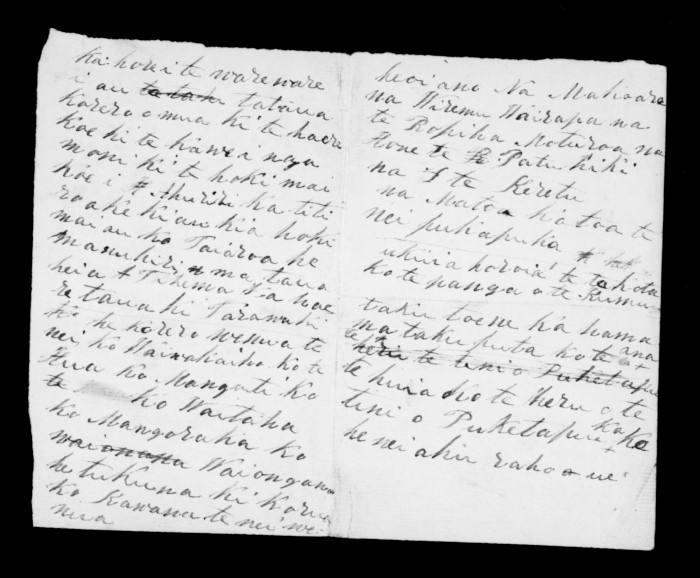 ka horei te wareware
i au te taku tatäua
korero o mua ki te haere
koe ki te kawe i nga
moni ki te hoki mai
koe i Ahuriri ka titi
ro ake ki au kia hoki
mai au ko Taiaroa he
manuhiri ma taua
heia Tihema ka hoe
re taua ki Taranaki
ko he korero wenua te
nei ko Waiwakaiho. ko te
Hua ko. Mangati ko
te ko Waitaha
ko Mangoraka ko
waionana Waiongana
he tukuna ki korua
ko Kawana te nei we-
nua
heoi ano Na Mahoare
na Wiremu Wairapa na
te Ropiha. Moturoa na
Hone te Patu kiki
na I te Keretu
na Matoa ka toa te
nei pukapuka
ukiia koroia te te kota
ko te panga o te Kumu
taku toenu ka hama
na taku puta ko te ana
te uni o Puketapu
te huia ko te heru o te
tini o Puketapu kake
he nei ahu raho ue